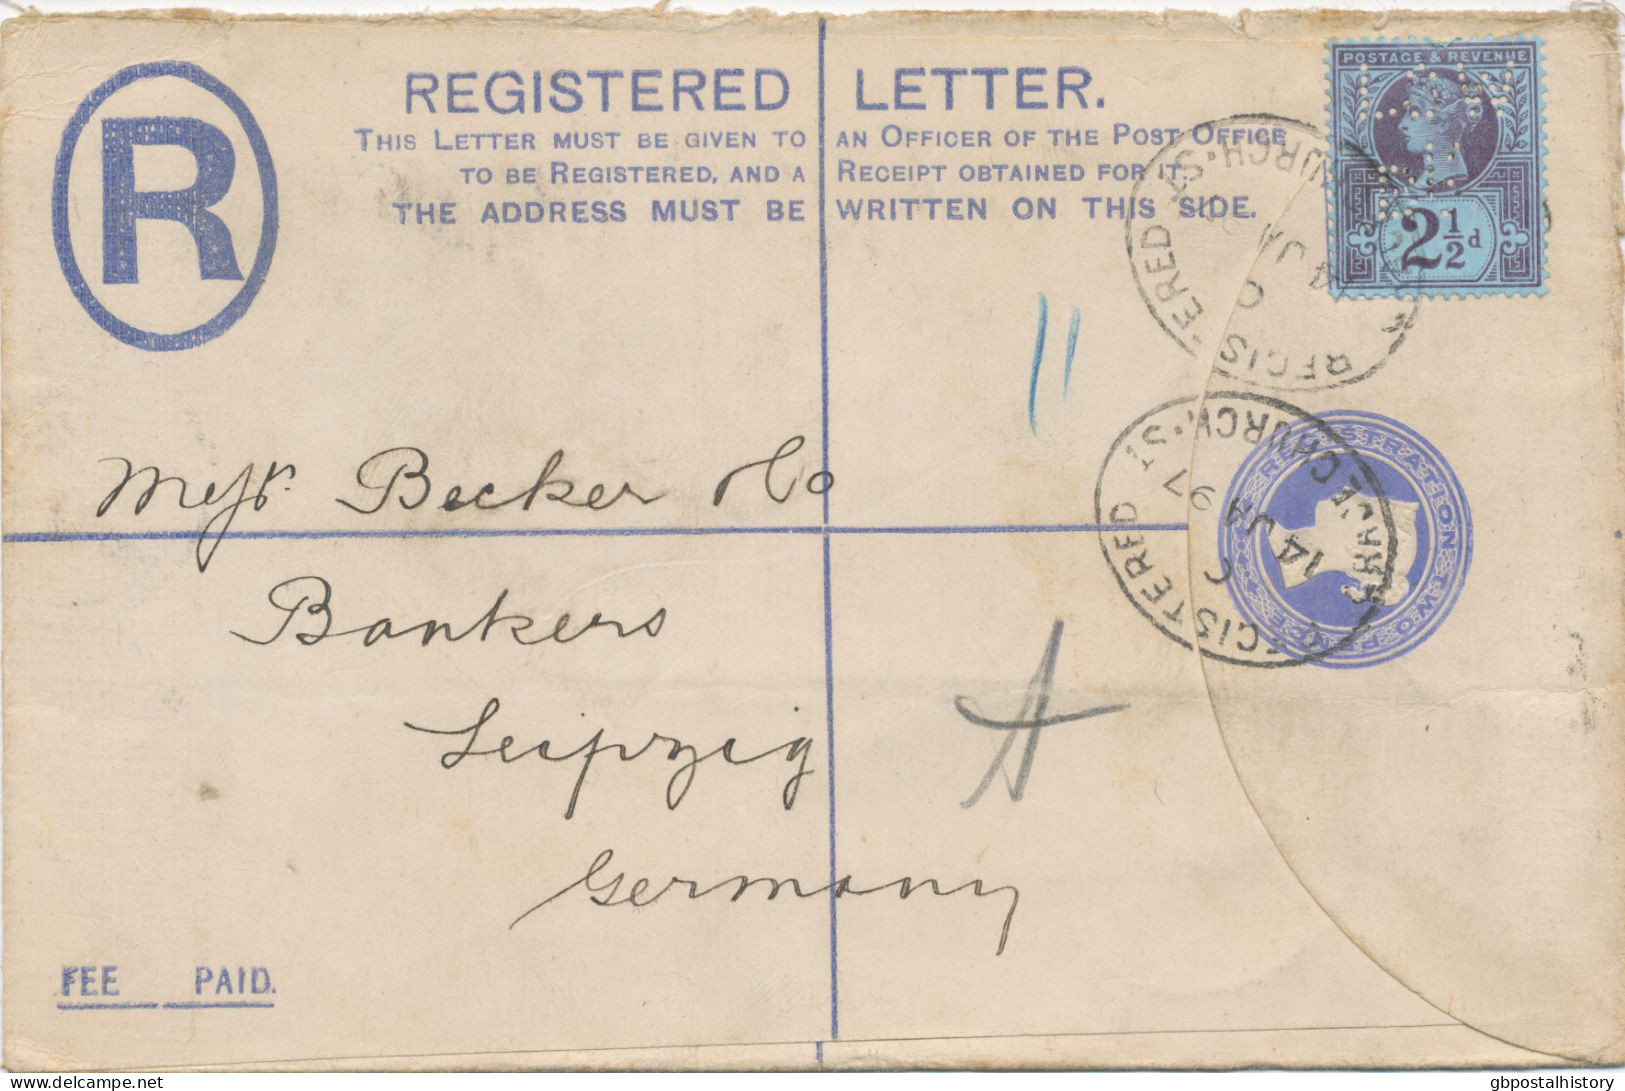 REGISTERED LETTER.
THIS LETTER MUST BE GIVEN TO AN OFFICER OF THE POST OFFICE
TO BE REGISTERED, AND A RECEIPT OBTAINED FOR IT.
THE ADDRESS MUST BE WRITTEN ON THIS SIDE.
R
POSTAGE & REVENUE
2½d
11
REGISTERED
14 JA 97
C
Messr. Becker & Co
Bankers
Leipzig
Germany
A
FEE PAID.
delcampe.net
gbpostalhistory